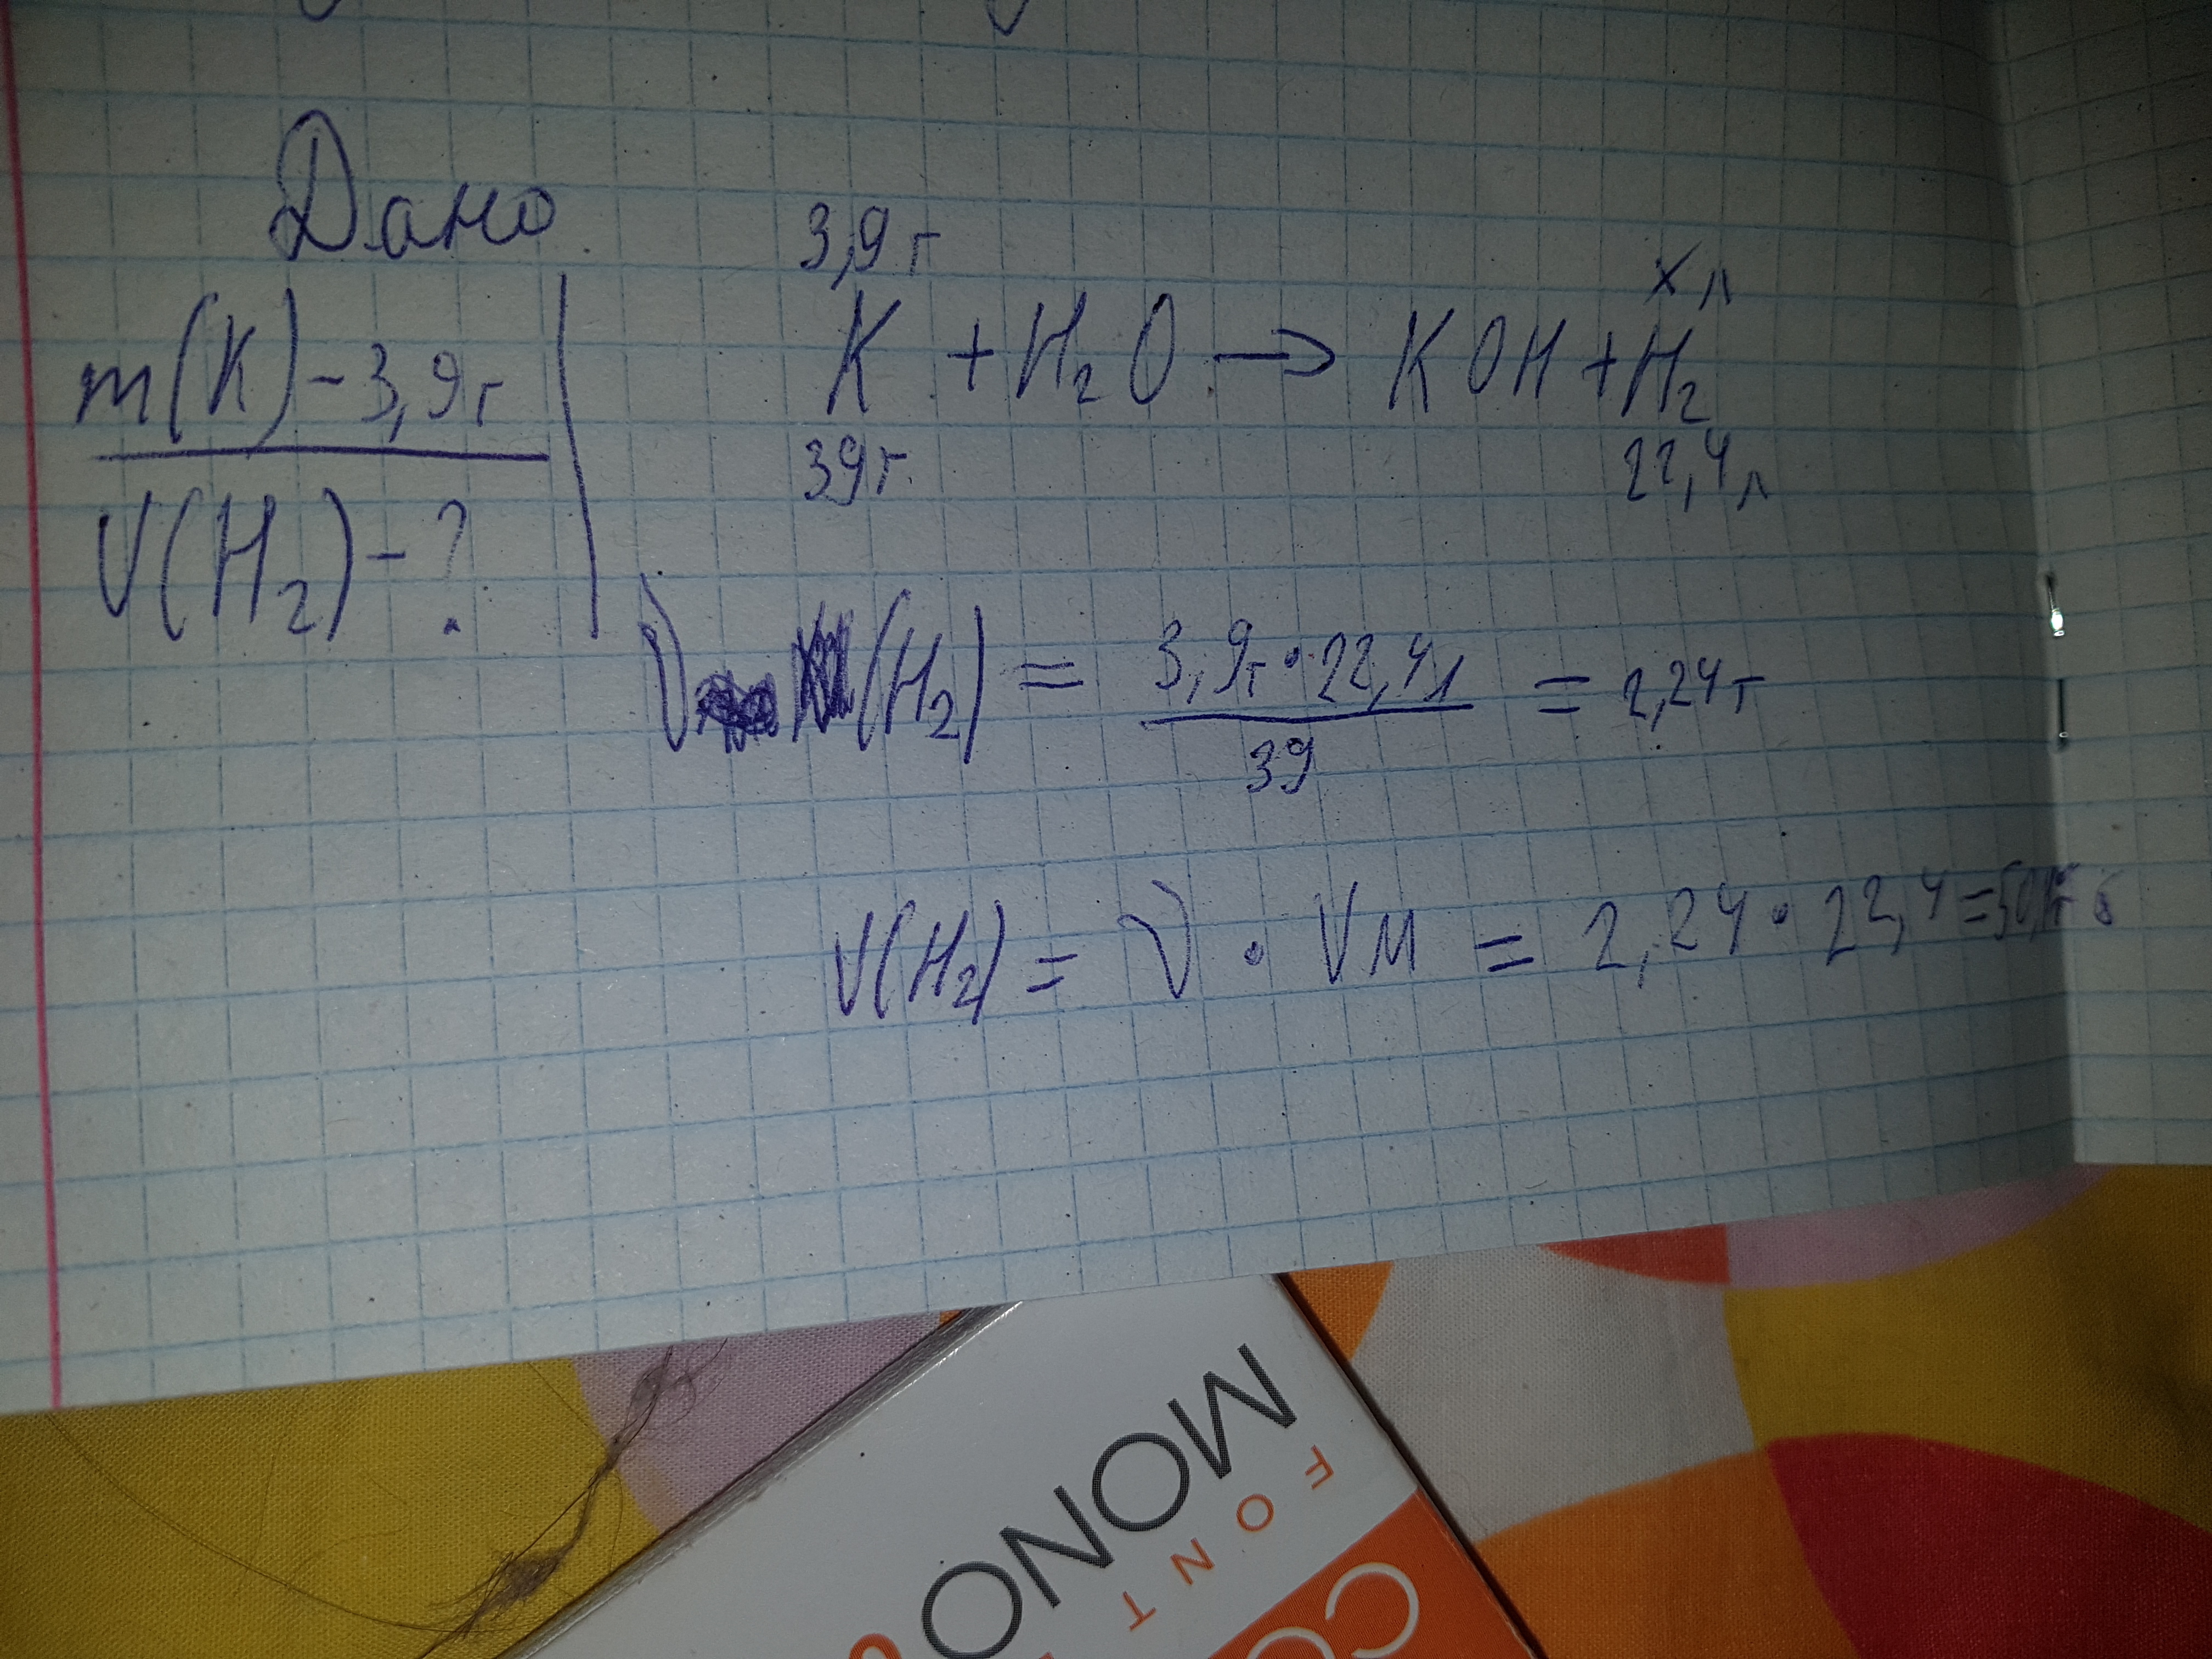 Дано
m(K) - 3,9г
V(H₂) - ?
3,9г
x л
K + H₂O → KOH + H₂
39г
22,4л
(H₂) = 3,9г · 22,4л / 39 = 2,24г
V(H₂) = ν · Vм = 2,24 · 22,4 =
MONO
FONT